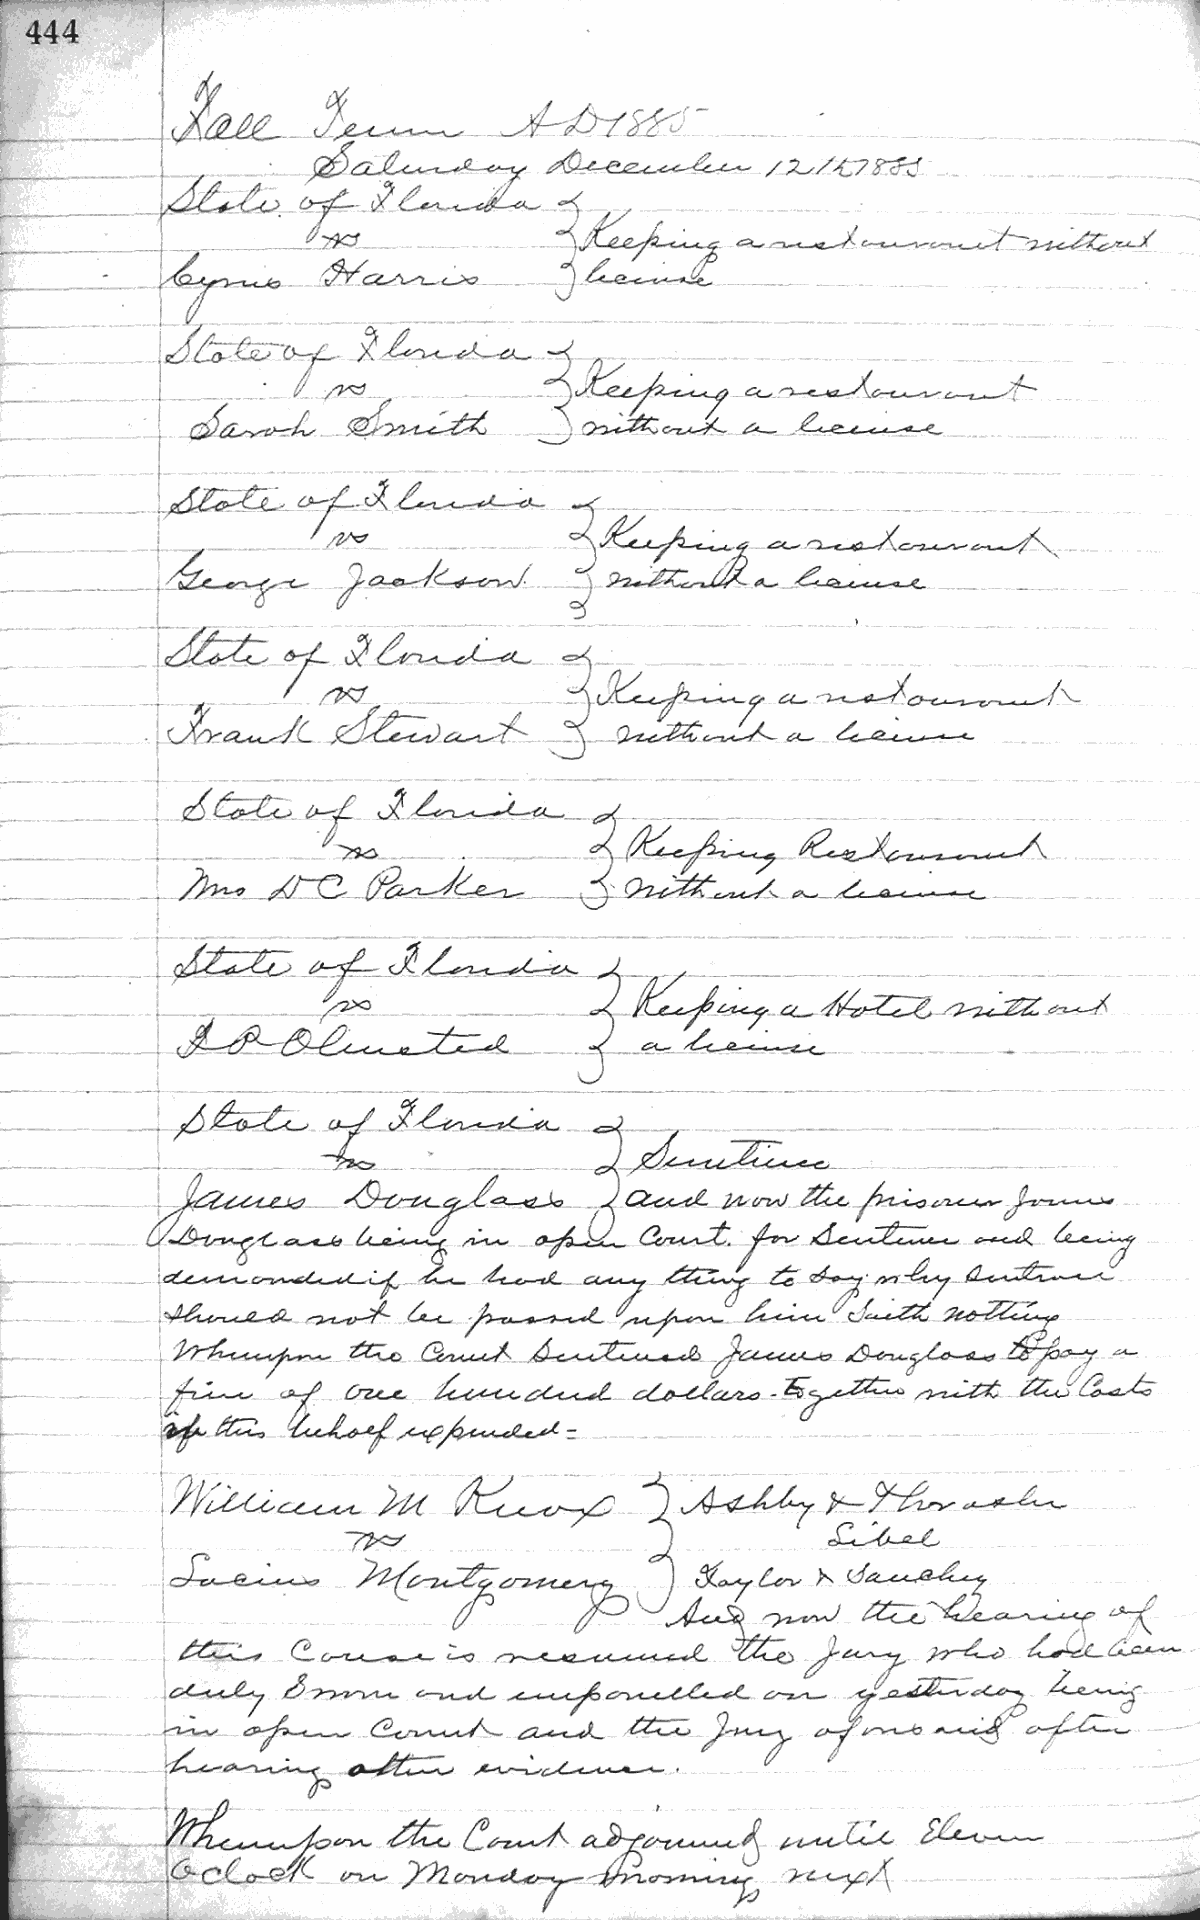 444
Fall Term A D 1885
Saturday December 12th 1885
State of Florida
vs
Keeping a restaurant without
Cyrus Harris
license
State of Florida
vs
Keeping a restaurant
Sarah Smith
without a license
State of Florida
vs
Keeping a restaurant
George Jackson
without a license
State of Florida
vs
Keeping a restaurant
Frank Stewart
without a license
State of Florida
vs
Keeping Restaurant
Mrs D C Parker
without a license
State of Florida
vs
Keeping a Hotel without
F P Olmsted
a license
State of Florida
vs
Sentence
James Douglass
and now the prisoner James
Douglass being in open Court. for Sentence and being
demanded if he had any thing to say why Sentence
should not be passed upon him Saith nothing
Whereupon the Court Sentenced James Douglass to pay a
fine of one hundred dollars - together with the Costs
in this behalf expended =
William M Knox
Ashby & Thrasher
vs
Libel
Lucius Montgomery
Taylor & Sanchez
And now the hearing of
this Cause is resumed the Jury who had been
duly Sworn and empanelled on yesterday being
in open Court and the Jury aforesaid after
hearing evidence.
Whereupon the Court adjourned until Eleven
O'clock on Monday morning next